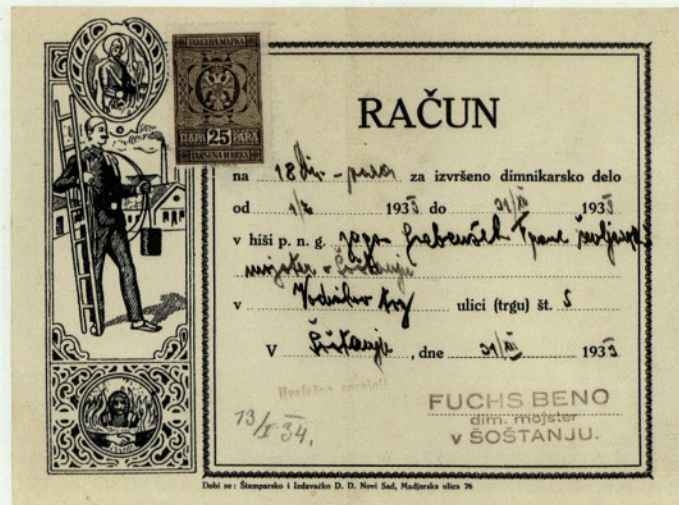 ТАКСЕНА МАРКА
ПАРА 25 PARA
TAKSENA MARKA
RAČUN
na 18 din – para za izvršeno dimnikarsko delo
od 1/7 1933 do 31/XII 1933
v hiši p. n. g.
mojster v Šoštanju
v trg ulici (trgu) št. 5
V Šoštanju, dne 31/XII 1933
Hvaležno sprejel:
13/I 34.
FUCHS BENO
dim. mojster
v ŠOŠTANJU.
Dobi se: Štamparsko i Izdavačko D. D. Novi Sad, Madjarska ulica 76